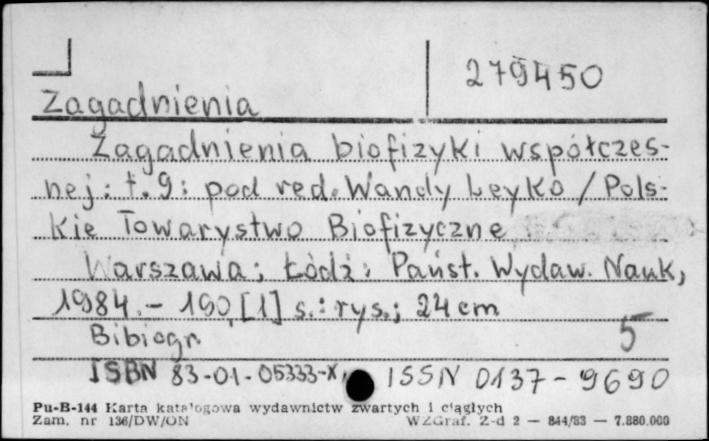 279450
Zagadnienia
Zagadnienia biofizyki współczes-
nej : t. 9 : pod red. Wandy Leyko / Pols-
kie Towarzystwo Biofizyczne
Warszawa ; Łódź : Państ. Wydaw. Nauk,
1984. - 190, [1] s. : rys. ; 24 cm
Bibiogr. 5
ISBN 83-01-05333-X, ISSN 0137-9690
Pu-B-144 Karta katalogowa wydawnictw zwartych i ciągłych
Zam. nr 136/DW/ON WZGraf. Z-d 2 — 844/83 — 7.880.000